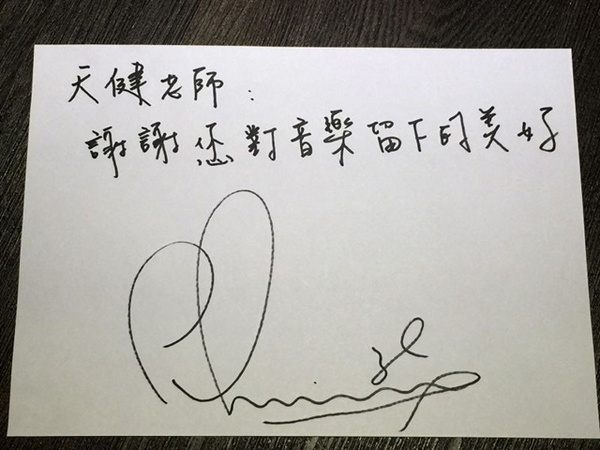 天健老師：
謝謝您對音樂留下的美好